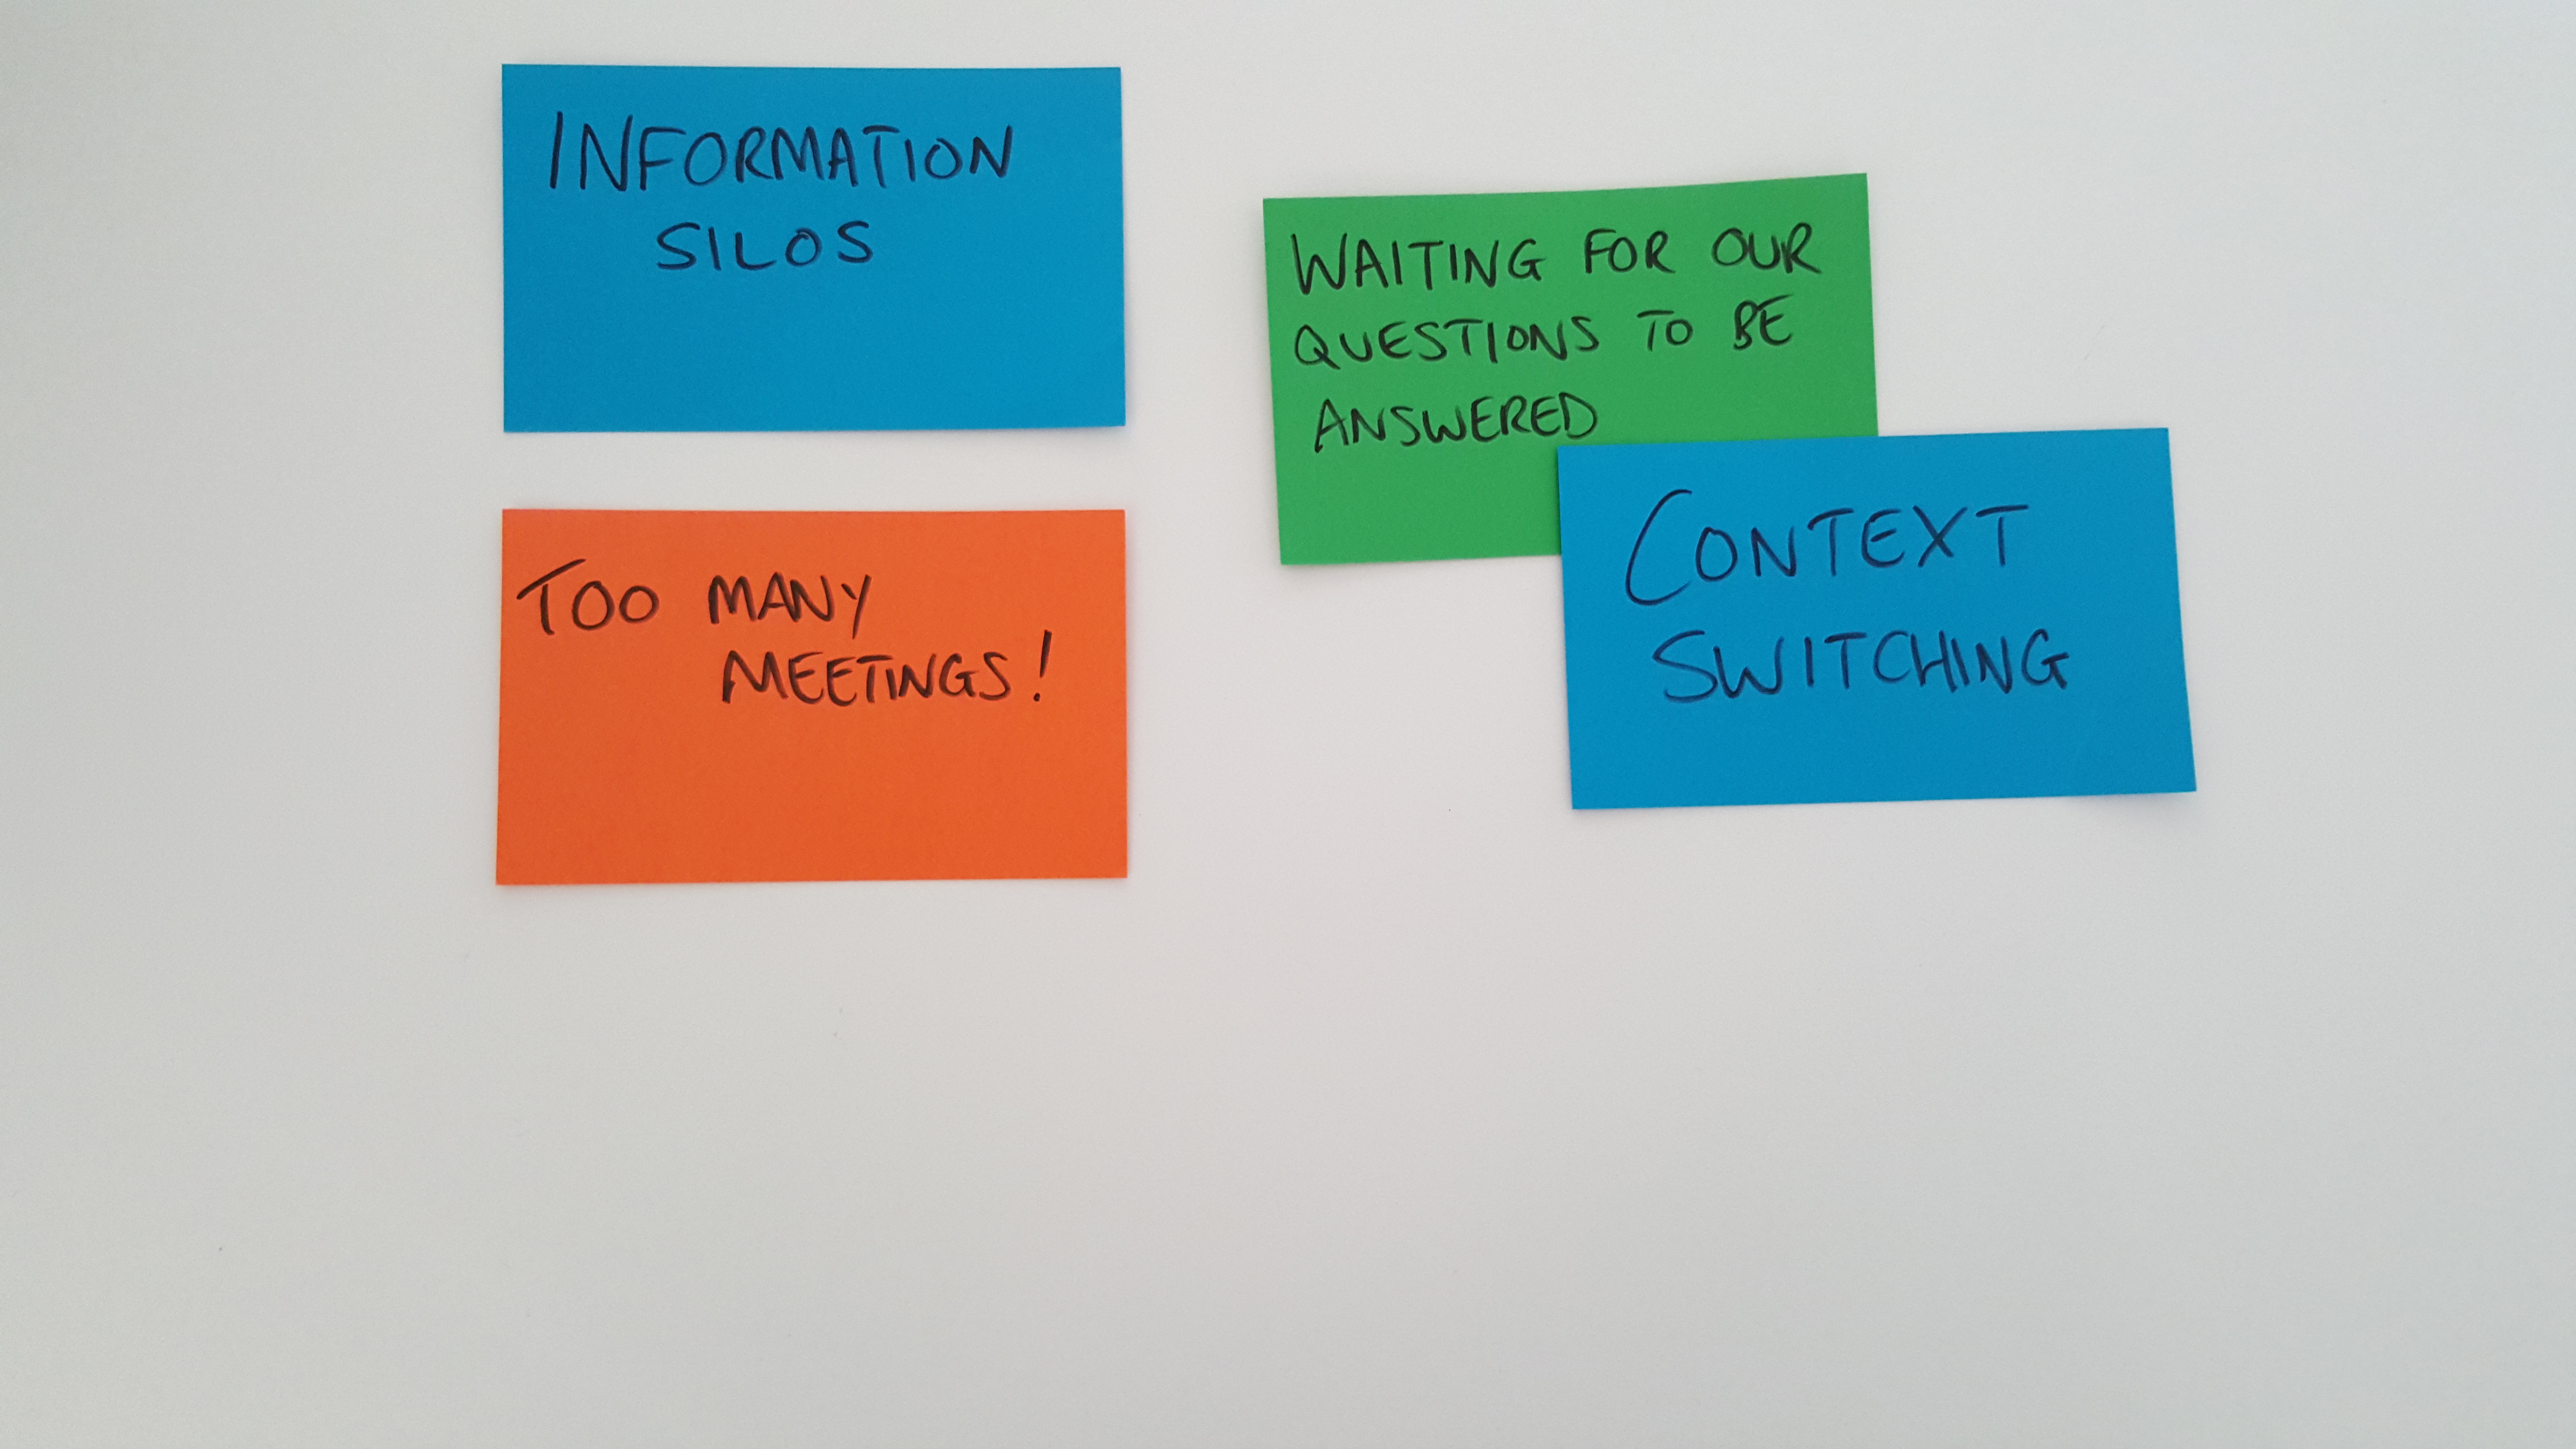 INFORMATION
SILOS
TOO MANY
MEETINGS!
WAITING FOR OUR
QUESTIONS TO BE
ANSWERED
CONTEXT
SWITCHING